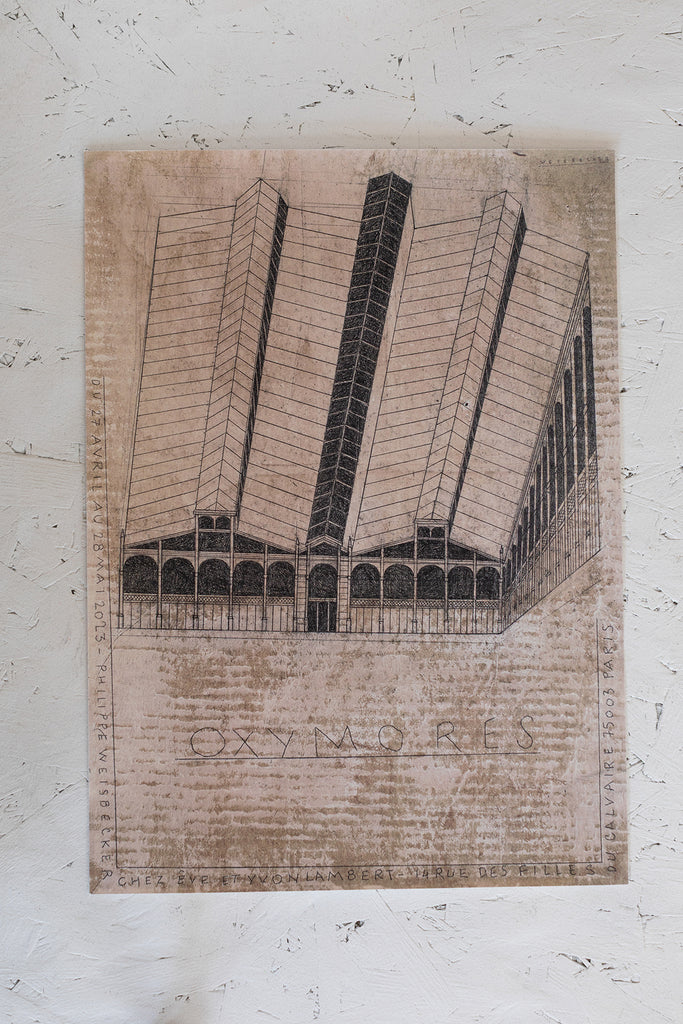 OXYMORES
DU 27 AVRIL AU 28 MAI 2023 - PHILIPPE WEISBECKER
CHEZ EVE ET YVON LAMBERT - 14 RUE DES FILLES
DU CALVAIRE 75003 PARIS